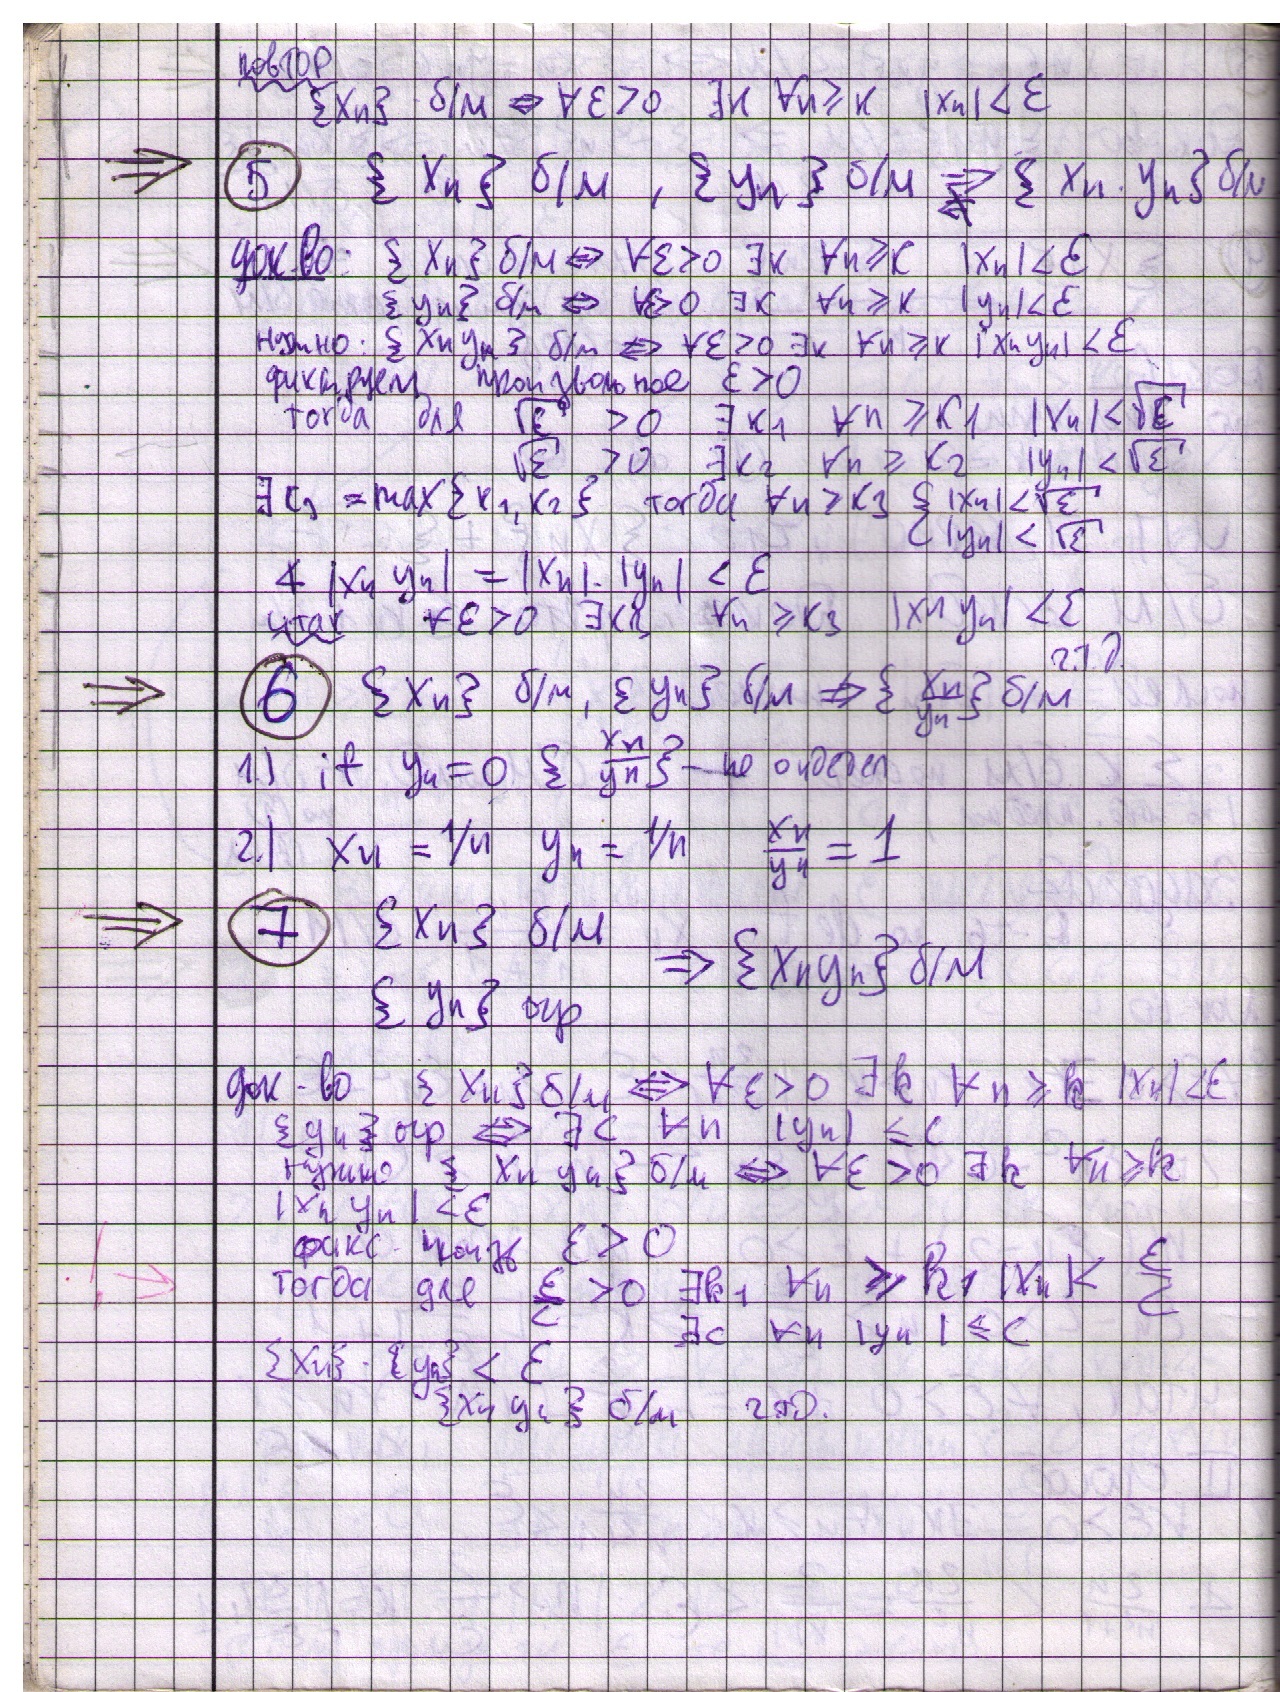 повтор
{xn} б/м ⇔ ∀ε>0 ∃k ∀n≥k |xn|<ε
⇒ 5 {xn} б/м, {yn} б/м ⇒ {xn·yn} б/м
док-во: {xn} б/м ⇔ ∀ε>0 ∃k ∀n≥k |xn|<ε
{yn} б/м ⇔ ∀ε>0 ∃k ∀n≥k |yn|<ε
нужно: {xnyn} б/м ⇔ ∀ε>0 ∃k ∀n≥k |xnyn|<ε
фиксируем произвольное ε>0
тогда для √ε >0 ∃k1 ∀n≥k1 |xn|<√ε
√ε >0 ∃k2 ∀n≥k2 |yn|<√ε
∃k3 = max{k1,k2} тогда ∀n≥k3 { |xn|<√ε
|yn|<√ε
|xn yn| = |xn|·|yn| < ε
итак ∀ε>0 ∃k3 ∀n≥k3 |xn yn|<ε
ч.т.д.
⇒ 6 {xn} б/м, {yn} б/м ⇏ {xn/yn} б/м
1.) if yn=0 {xn/yn} – не определ
2.) xn = 1/n yn = 1/n xn/yn = 1
⇒ 7 {xn} б/м
⇒ {xnyn} б/м
{yn} огр
док-во {xn} б/м ⇔ ∀ε>0 ∃k ∀n≥k |xn|<ε
{yn} огр ⇔ ∃c ∀n |yn| ≤ c
нужно {xn yn} б/м ⇔ ∀ε>0 ∃k ∀n≥k
|xn yn| <ε
фикс. произв ε>0
тогда для ε/c >0 ∃k1 ∀n ≥ k1 |xn| < ε/c
∃c ∀n |yn| ≤ c
{xn}·{yn} < ε
{xn yn} б/м ч.т.д.